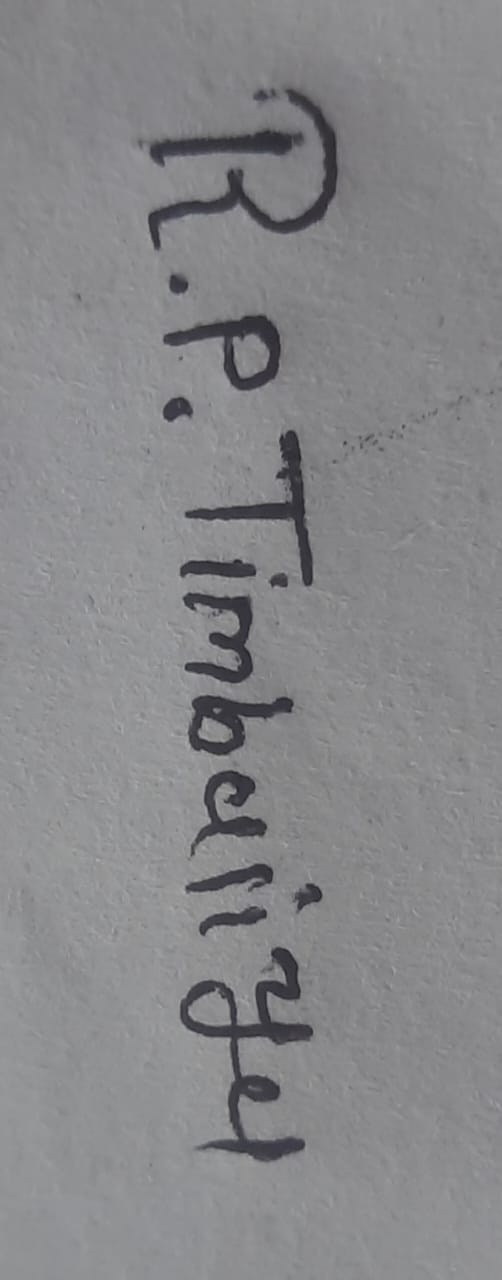 R.P. Timbariya